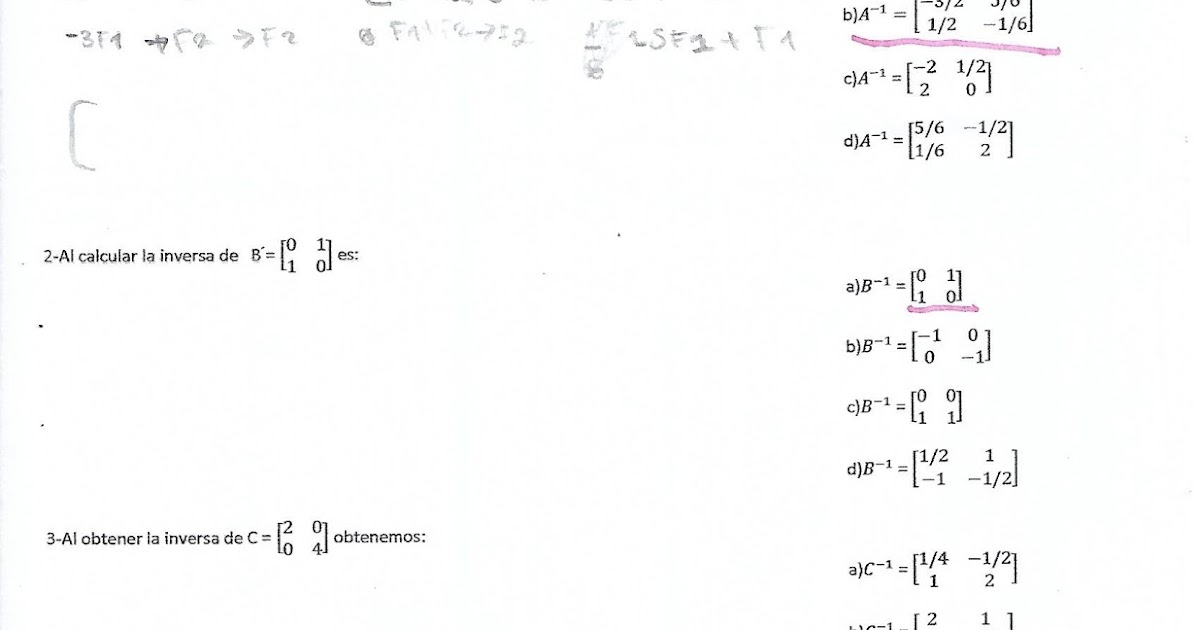 b)A⁻¹ = [−3/2 5/6
1/2 −1/6]
-3F1 + F2 → F2
c)A⁻¹ = [−2 1/2
2 0]
d)A⁻¹ = [5/6 −1/2
1/6 2]
2-Al calcular la inversa de B´= [0 1
1 0] es:
a)B⁻¹ = [0 1
1 0]
b)B⁻¹ = [−1 0
0 −1]
c)B⁻¹ = [0 0
1 1]
d)B⁻¹ = [1/2 1
−1 −1/2]
3-Al obtener la inversa de C = [2 0
0 4] obtenemos:
a)C⁻¹ = [1/4 −1/2
1 2]
[2 1]